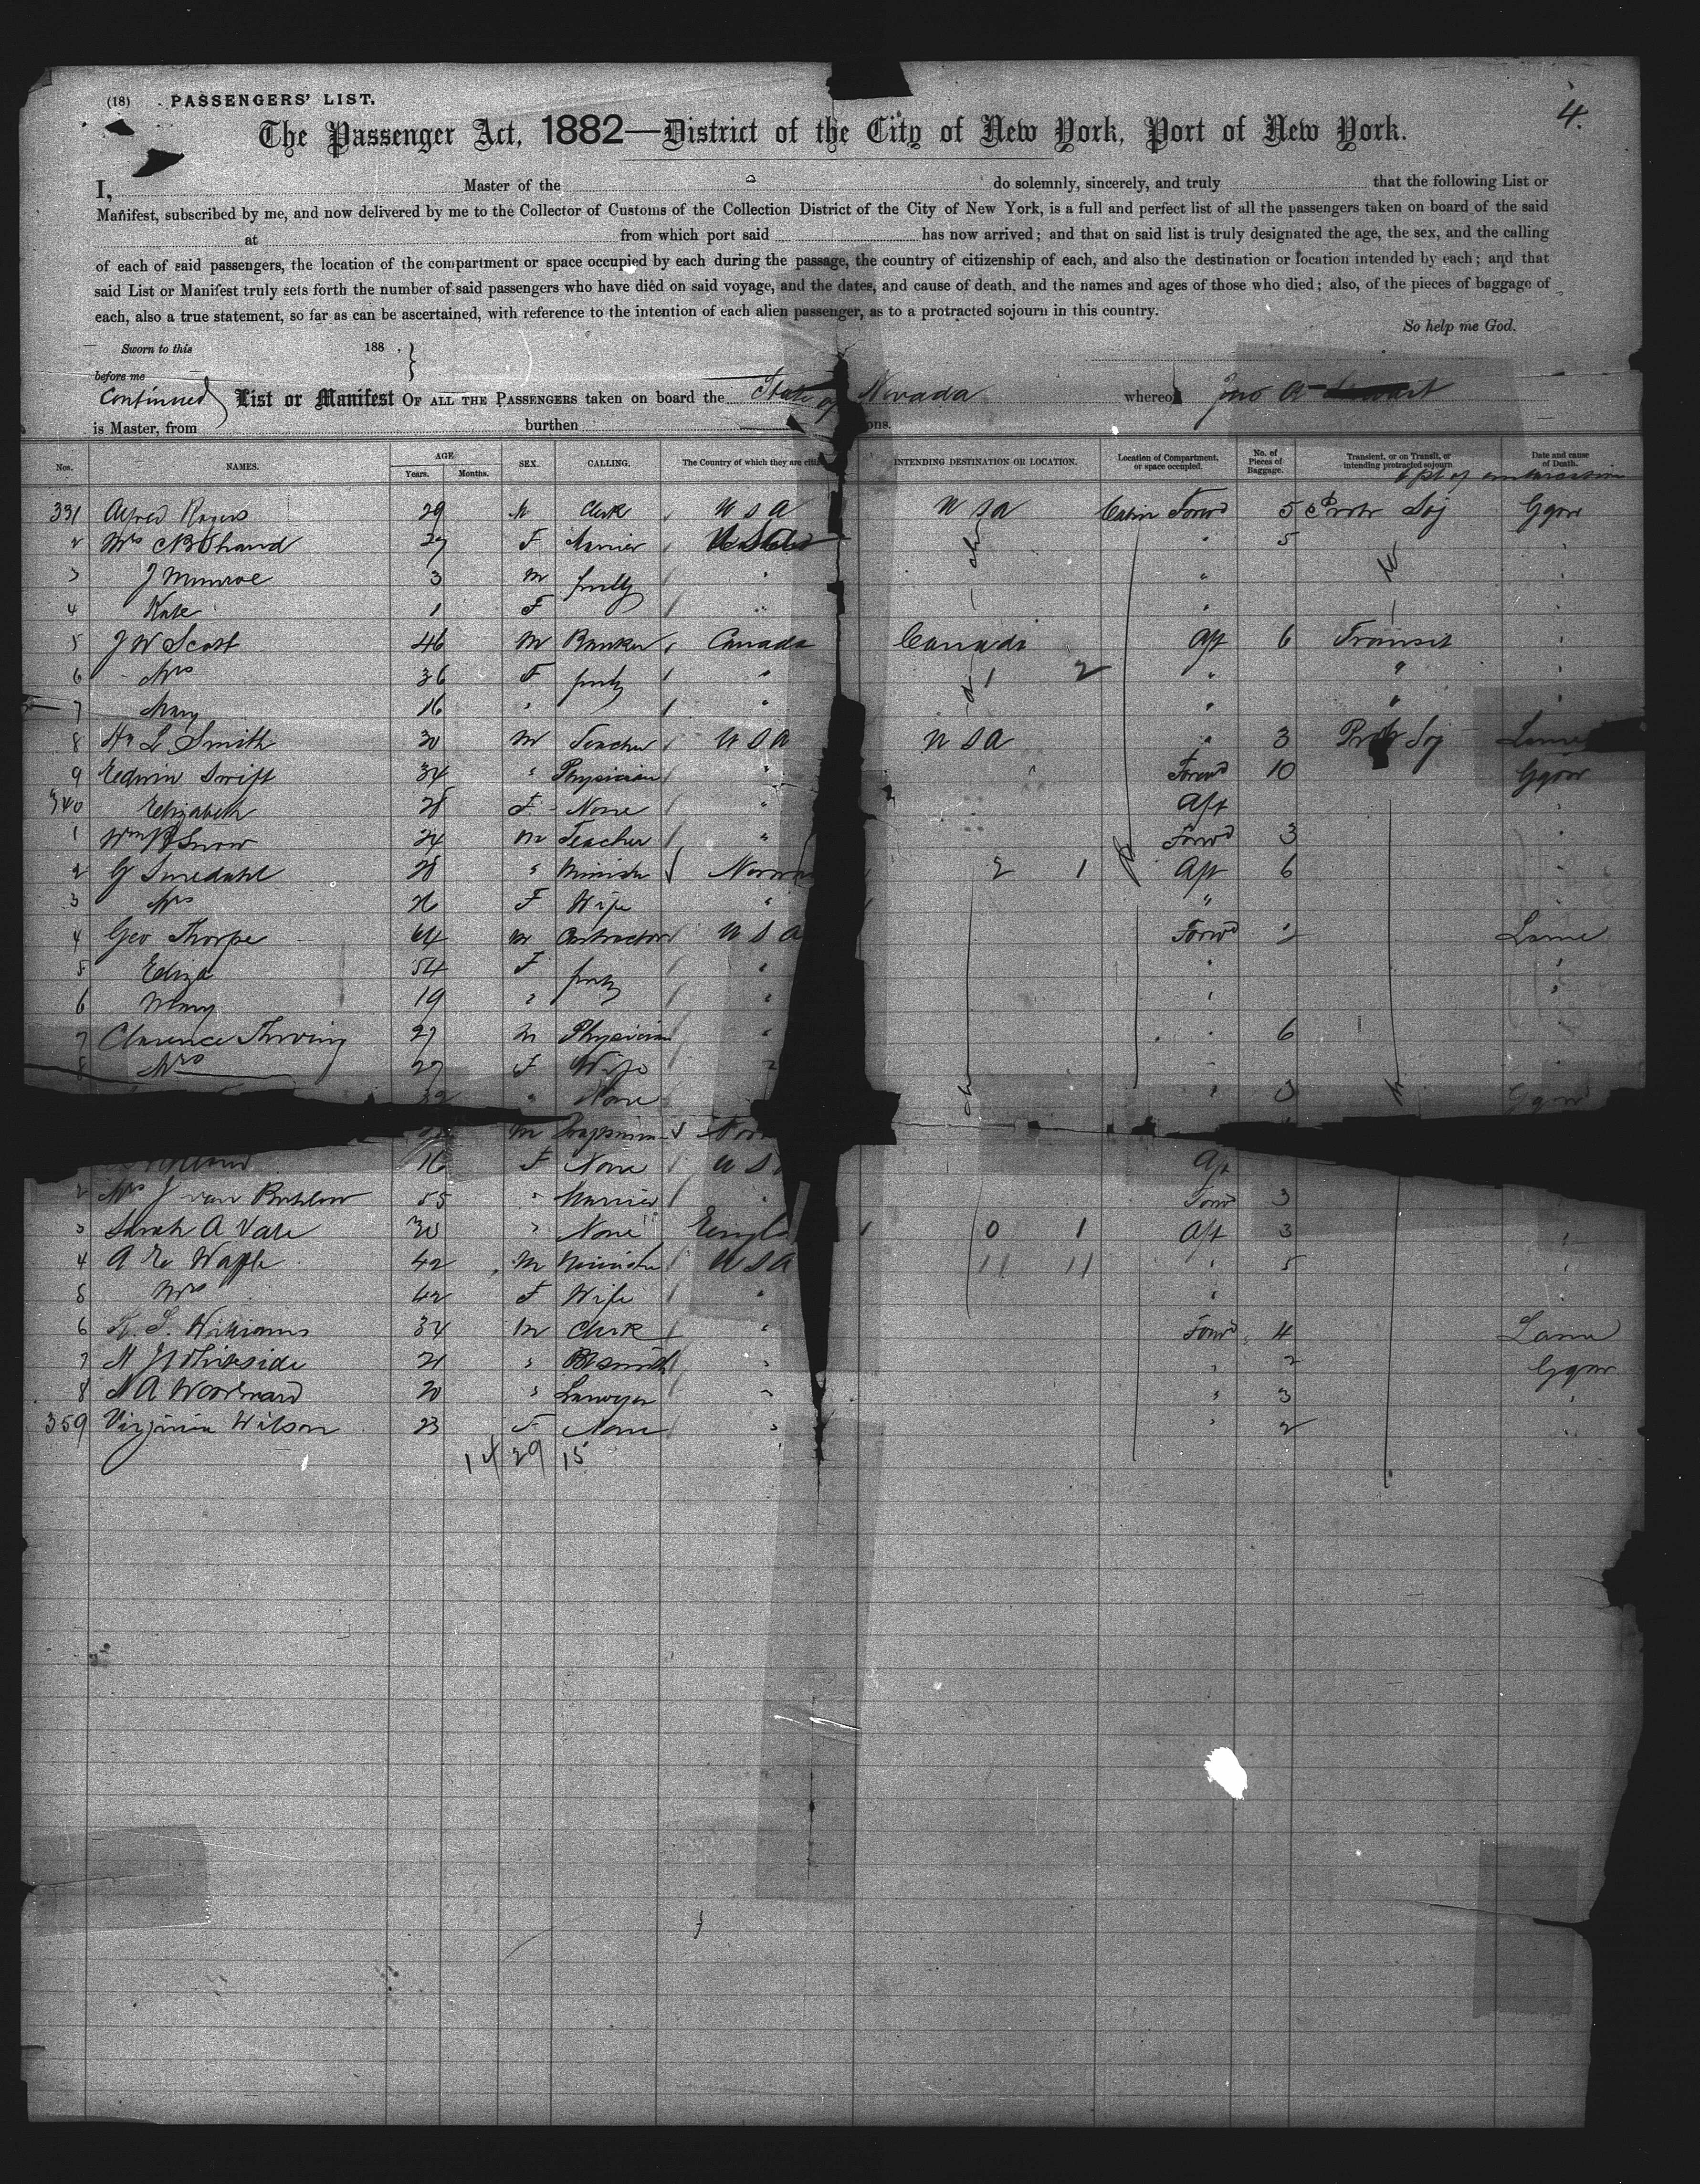 (18) PASSENGERS' LIST. 4.
The Passenger Act, 1882—District of the City of New York, Port of New York.
I, Master of the do solemnly, sincerely, and truly that the following List or
Manifest, subscribed by me, and now delivered by me to the Collector of Customs of the Collection District of the City of New York, is a full and perfect list of all the passengers taken on board of the said
at from which port said has now arrived; and that on said list is truly designated the age, the sex, and the calling
of each of said passengers, the location of the compartment or space occupied by each during the passage, the country of citizenship of each, and also the destination or location intended by each; and that
said List or Manifest truly sets forth the number of said passengers who have died on said voyage, and the dates, and cause of death, and the names and ages of those who died; also, of the pieces of baggage of
each, also a true statement, so far as can be ascertained, with reference to the intention of each alien passenger, as to a protracted sojourn in this country.
So help me God.
Sworn to this 188 ,
before me
Continued List or Manifest OF ALL THE PASSENGERS taken on board the State of Nevada whereof Jno A
is Master, from burthen ons.
Nos. NAMES. AGE Years. Months. SEX. CALLING. The Country of which they are INTENDING DESTINATION OR LOCATION. Location of Compartment, or space occupied. No. of Pieces of Baggage. Transient, or on Transit, or intending protracted sojourn Date and cause of Death.
pt of embarcation
331 Alfred Rogers 29 M Clerk U S A U S A Cabin Forwd 5 Protr Soj Ggow
2 Mrs 27 F Married " 5
3 J Munroe 3 M family " "
4 Kate 1 F " "
5 J W Scott 46 M Banker Canada Canada Aft 6 Transit
6 Mrs 36 F family " 1 2 " "
7 Mary 16 " " " "
8 L Smith 30 M Teacher U S A U S A " 3 Protr Soj
9 Edwin Swift 34 " Physician " Forwd 10 Ggow
340 Elizabeth 28 F None " Aft
1 Wm Snow 24 M Teacher " Forwd 3
2 G Smedahl 28 " Minister Norw 2 1 Aft 6
3 Mrs 26 F Wife " "
4 Geo Thorpe 64 M Contractor U S A Forwd 2 Larne
5 Eliza 54 F family " "
6 Mary 19 " " "
7 Clarence Thwing 27 M Physician " " 6
8 Mrs 27 F Wife "
32 " None " 3 Ggow
M Nor
16 F None U S Aft
2 Mrs J van 55 " Married " Forwd 3
3 Sarah A Vale 30 " None Engla 1 0 1 Aft 3
4 A E Waffle 42 M Minister U S A 11 11 " 5
5 Mrs 42 F Wife " "
6 Williams 34 M Clerk " Forwd 4 Larne
7 Whiteside 21 " Blksmith " " 2 Ggow
8 A Woodward 20 " Lawyer " " 3
359 Virginia Wilson 23 F None " " 2
14 29 15